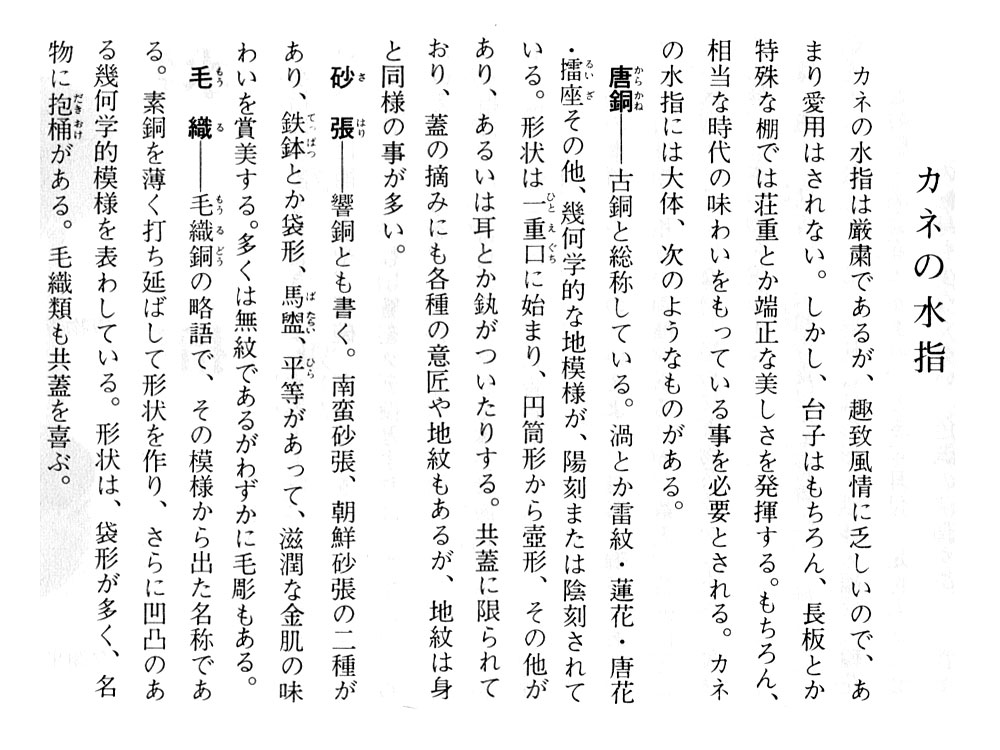 カネの水指
カネの水指は厳粛であるが、趣致風情に乏しいので、あ
まり愛用はされない。しかし、台子はもちろん、長板とか
特殊な棚では荘重とか端正な美しさを発揮する。もちろん、
相当な時代の味わいをもっている事を必要とされる。カネ
の水指には大体、次のようなものがある。
唐銅――古銅と総称している。渦とか雷紋・蓮花・唐花
・擂座その他、幾何学的な地模様が、陽刻または陰刻されて
いる。形状は一重口に始まり、円筒形から壺形、その他が
あり、あるいは耳とか釻がついたりする。共蓋に限られて
おり、蓋の摘みにも各種の意匠や地紋もあるが、地紋は身
と同様の事が多い。
砂張――響銅とも書く。南蛮砂張、朝鮮砂張の二種が
あり、鉄鉢とか袋形、馬盥、平等があって、滋潤な金肌の味
わいを賞美する。多くは無紋であるがわずかに毛彫もある。
毛織――毛織銅の略語で、その模様から出た名称であ
る。素銅を薄く打ち延ばして形状を作り、さらに凹凸のあ
る幾何学的模様を表わしている。形状は、袋形が多く、名
物に抱桶がある。毛織類も共蓋を喜ぶ。